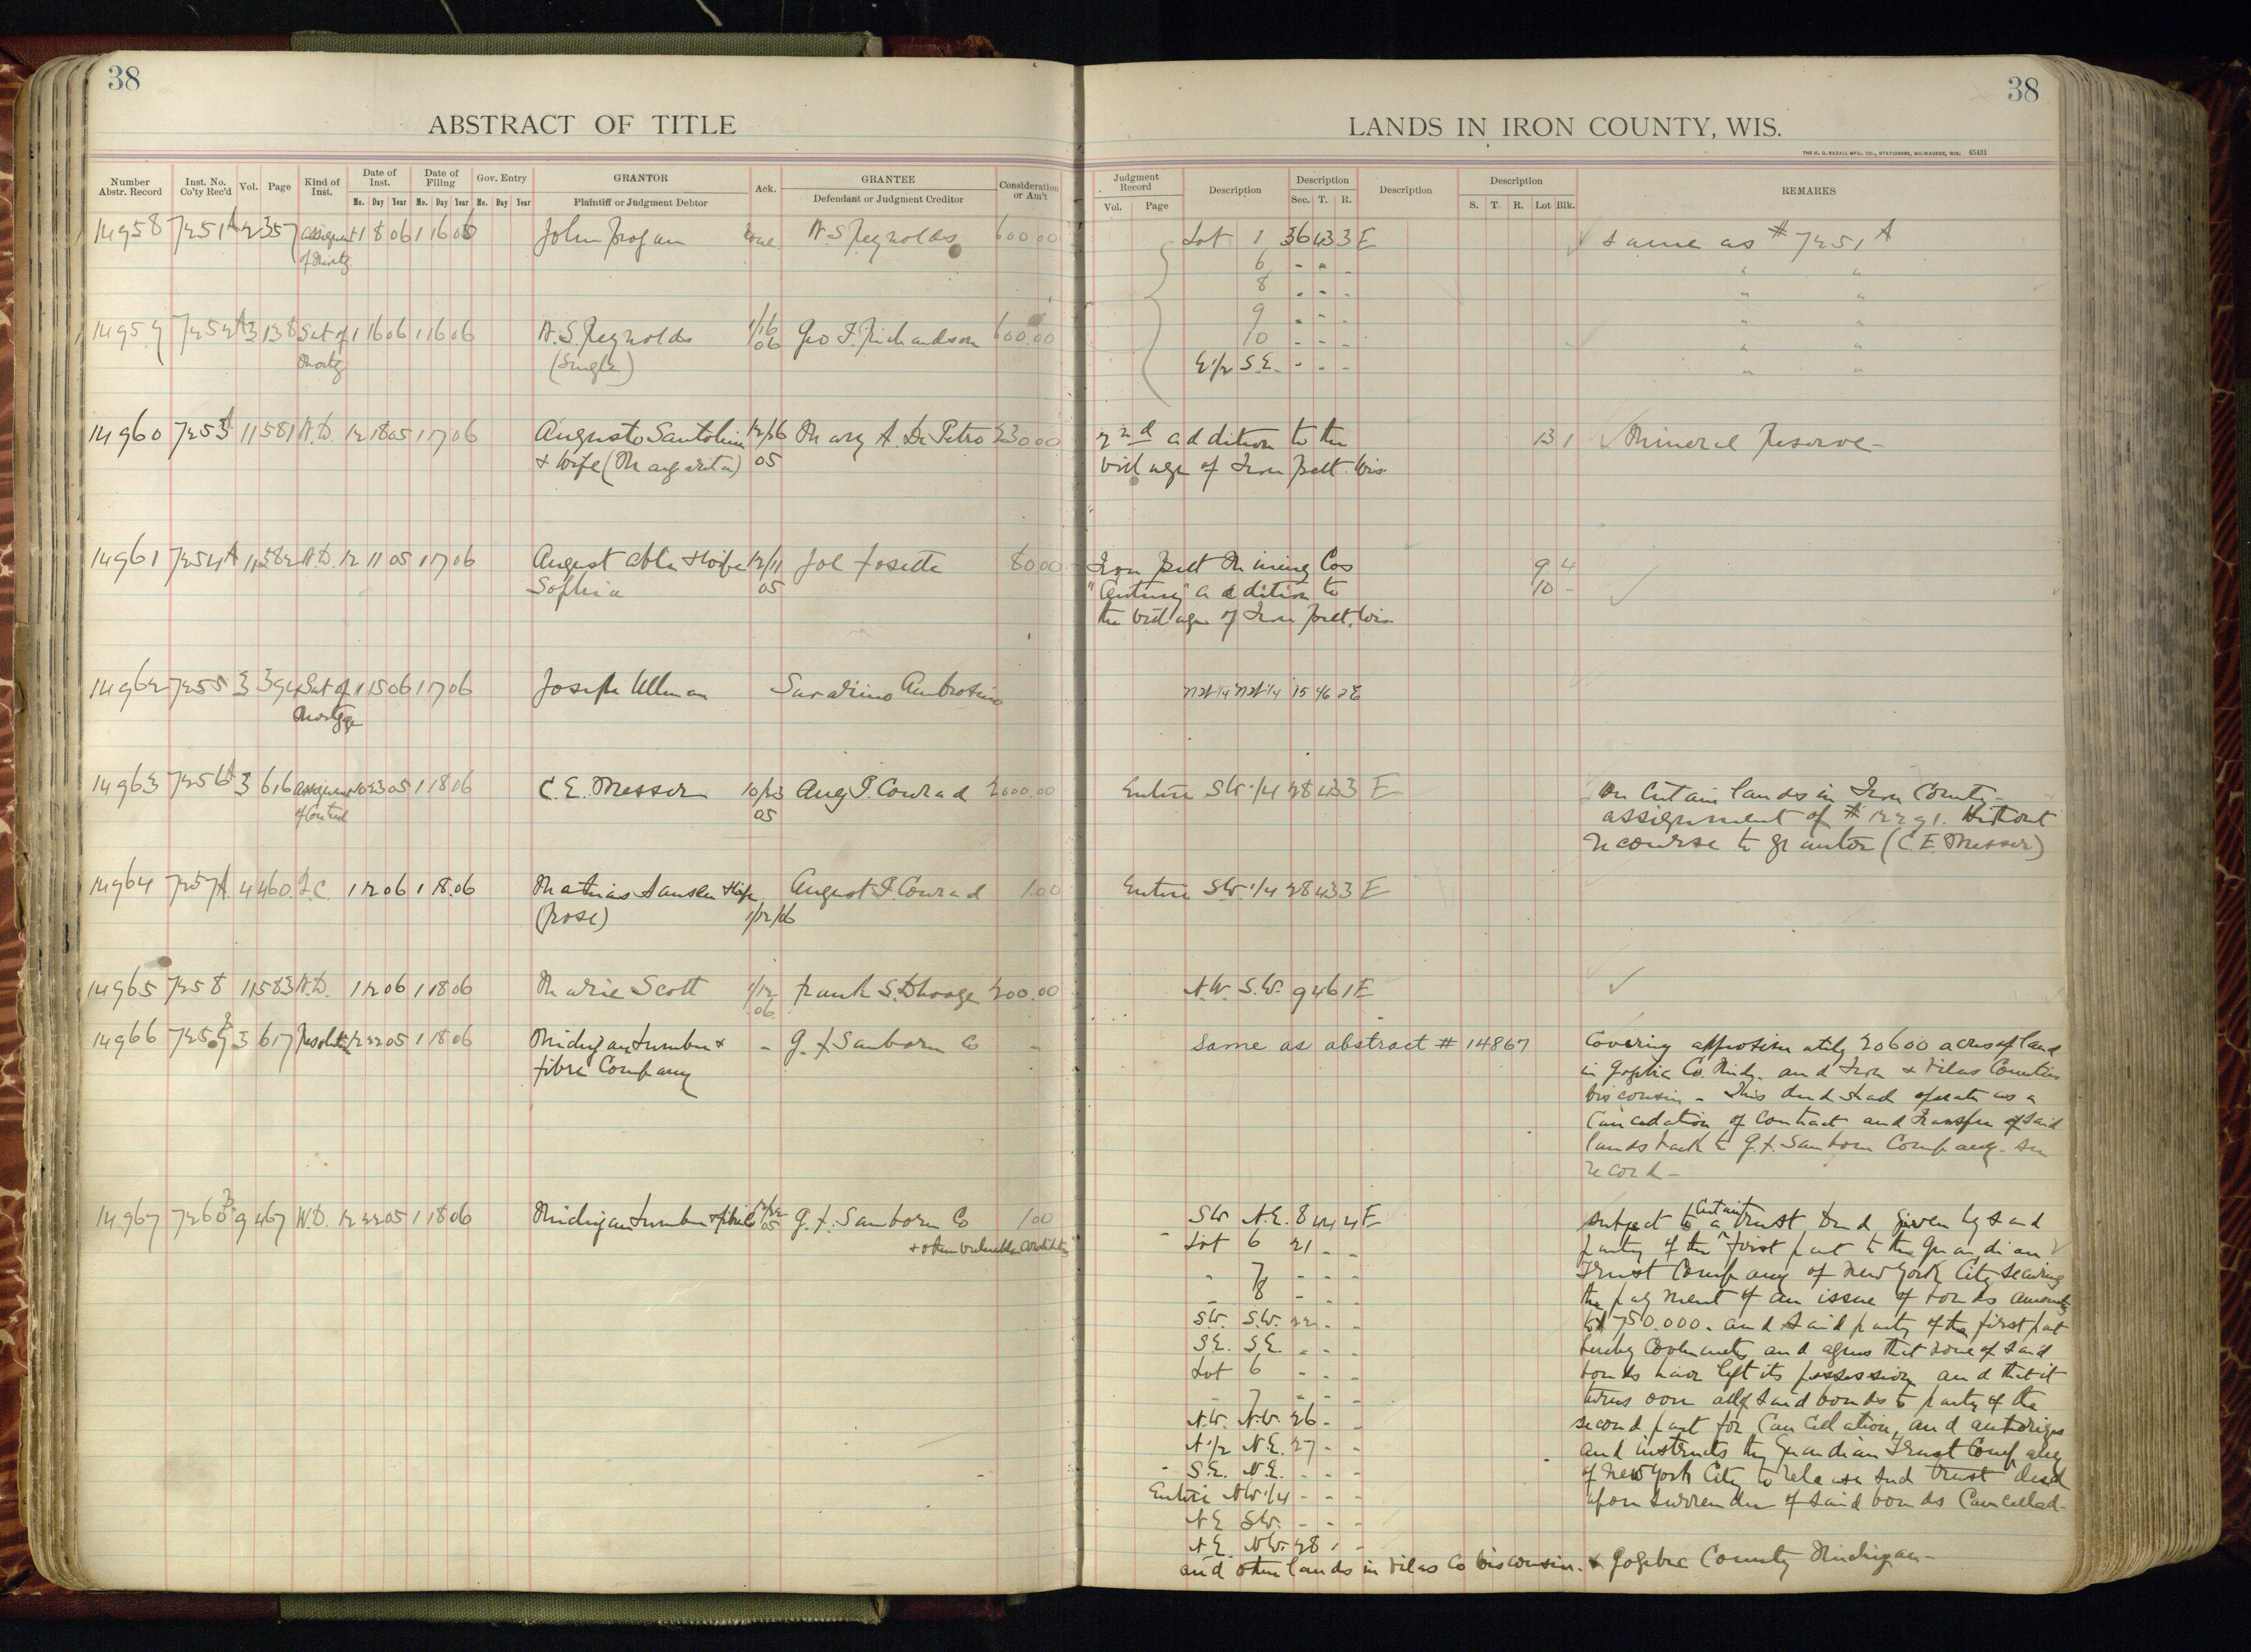 38
ABSTRACT OF TITLE
Number Abstr. Record
Inst. No. Co'ty Rec'd
Vol.
Page
Kind of Inst.
Date of Inst.
Mo. Day Year
Date of Filing
Mo. Day Year
Gov. Entry
Mo. Day Year
GRANTOR
Plaintiff or Judgment Debtor
Ack.
GRANTEE
Defendant or Judgment Creditor
Consideration or Am't
14958 7251A 2 357 Assignment 1 8 06 1 16 06 John W. S. Reynolds 600 00
of Mortg.
14959 7252A 3 138 Sat of 1 16 06 1 16 06 W. S. Reynolds 1/16 Geo F. Richardson 600.00
Mortg (Single) 06
14960 7253A 11 581 W.D. 12 18 05 1 17 06 Augusto Santolini 12/26 Mary A. De Petro 230 00
& Wife (Margarita) 05
14961 7254A 11 582 W.D. 12 11 05 1 17 06 August Able & Wife 12/11 Joe 80 00
Sophia 05
14962 7255 3 394 Sat of 1 15 06 1 17 06 Joseph Ullman
Mortgage
14963 7256A 3 616 Assignment 10 23 05 1 18 06 C. E. Messer 10/23 Aug P. Conrad 2000.00
of Contract 05
14964 7257A 4 460 Q.C. 1 12 06 1 18 06 Mathias Hansen & Wife August P. Conrad 1.00
(Rose) 1/12/06
14965 7258 11 583 W.D. 1 12 06 1 18 06 Marie Scott 1/12 Frank S. Dhooge 200.00
06
14966 7259 3 617 Resolution 12 22 05 1 18 06 Michigan Lumber & - G. F. Sanborn Co -
Fibre Company
14967 7260 9 467 W.D. 12 22 05 1 18 06 Michigan Lumber & Fibre Co 12/22 05 G. F. Sanborn Co 1 00
& other valuable consideration
38
LANDS IN IRON COUNTY, WIS.
THE H. G. RAZALL MFG. CO., STATIONERS, MILWAUKEE, WIS. 45431
Judgment Record
Vol. Page
Description
Description
Sec. T. R.
Description
Description
S. T. R. Lot Blk.
REMARKS
Lot 1 36 43 3 E Same as # 7251 A
6 - - - " "
8 - - - " "
9 - - - " "
10 - - - " "
E 1/2 S.E. - - - " "
2nd addition to the 13 1 Mineral Reserve -
village of Iron Belt. Wis.
Iron Belt Mining Cos 9 4
"Century" addition to 10 -
the village of Iron Belt, Wis.
NW 1/4 NW 1/4 15 46 2E
Entire SW 1/4 28 43 3 E On certain lands in Iron County -
assignment of # 12291. Without
recourse to grantor (C. E. Messer)
Entire S.W. 1/4 28 43 3 E
N.W. S.W. 9 46 1 E
Same as abstract # 14867 Covering approximately 20600 acres of land
in Gogebic Co. Mich. and Iron & Vilas Counties
Wisconsin - This deed shall operate as a
Cancellation of Contract and transfer of said
lands back to G. F. Sanborn Company. See
record -
SW N.E. 8 44 4 E Subject to a certain trust deed given by said
Lot 6 21 - - party of the first part to the Guardian
- 7 - - - Trust Company of New York City securing
- 8 - - - the payment of an issue of bonds amounting
S.W. S.W. 22 - - to $750.000. and said party of the first part
S.E. S.E. - - - hereby covenants and agrees that none of said
Lot 6 - - - bonds have left its possession and that it
- 7 - - - turns over all of said bonds to party of the
N.W. N.W. 26 - - second part for cancellation, and authorizes
N 1/2 N.E. 27 - - and instructs the Guardian Trust Company
S.E. N.E. - - - of New York City to release said trust deed
Entire NW 1/4 - - - upon surrender of said bonds cancelled -
NE SW. - - -
N.E. NW. 28 - -
and other lands in Vilas Co Wisconsin. & Gogebic County Michigan -